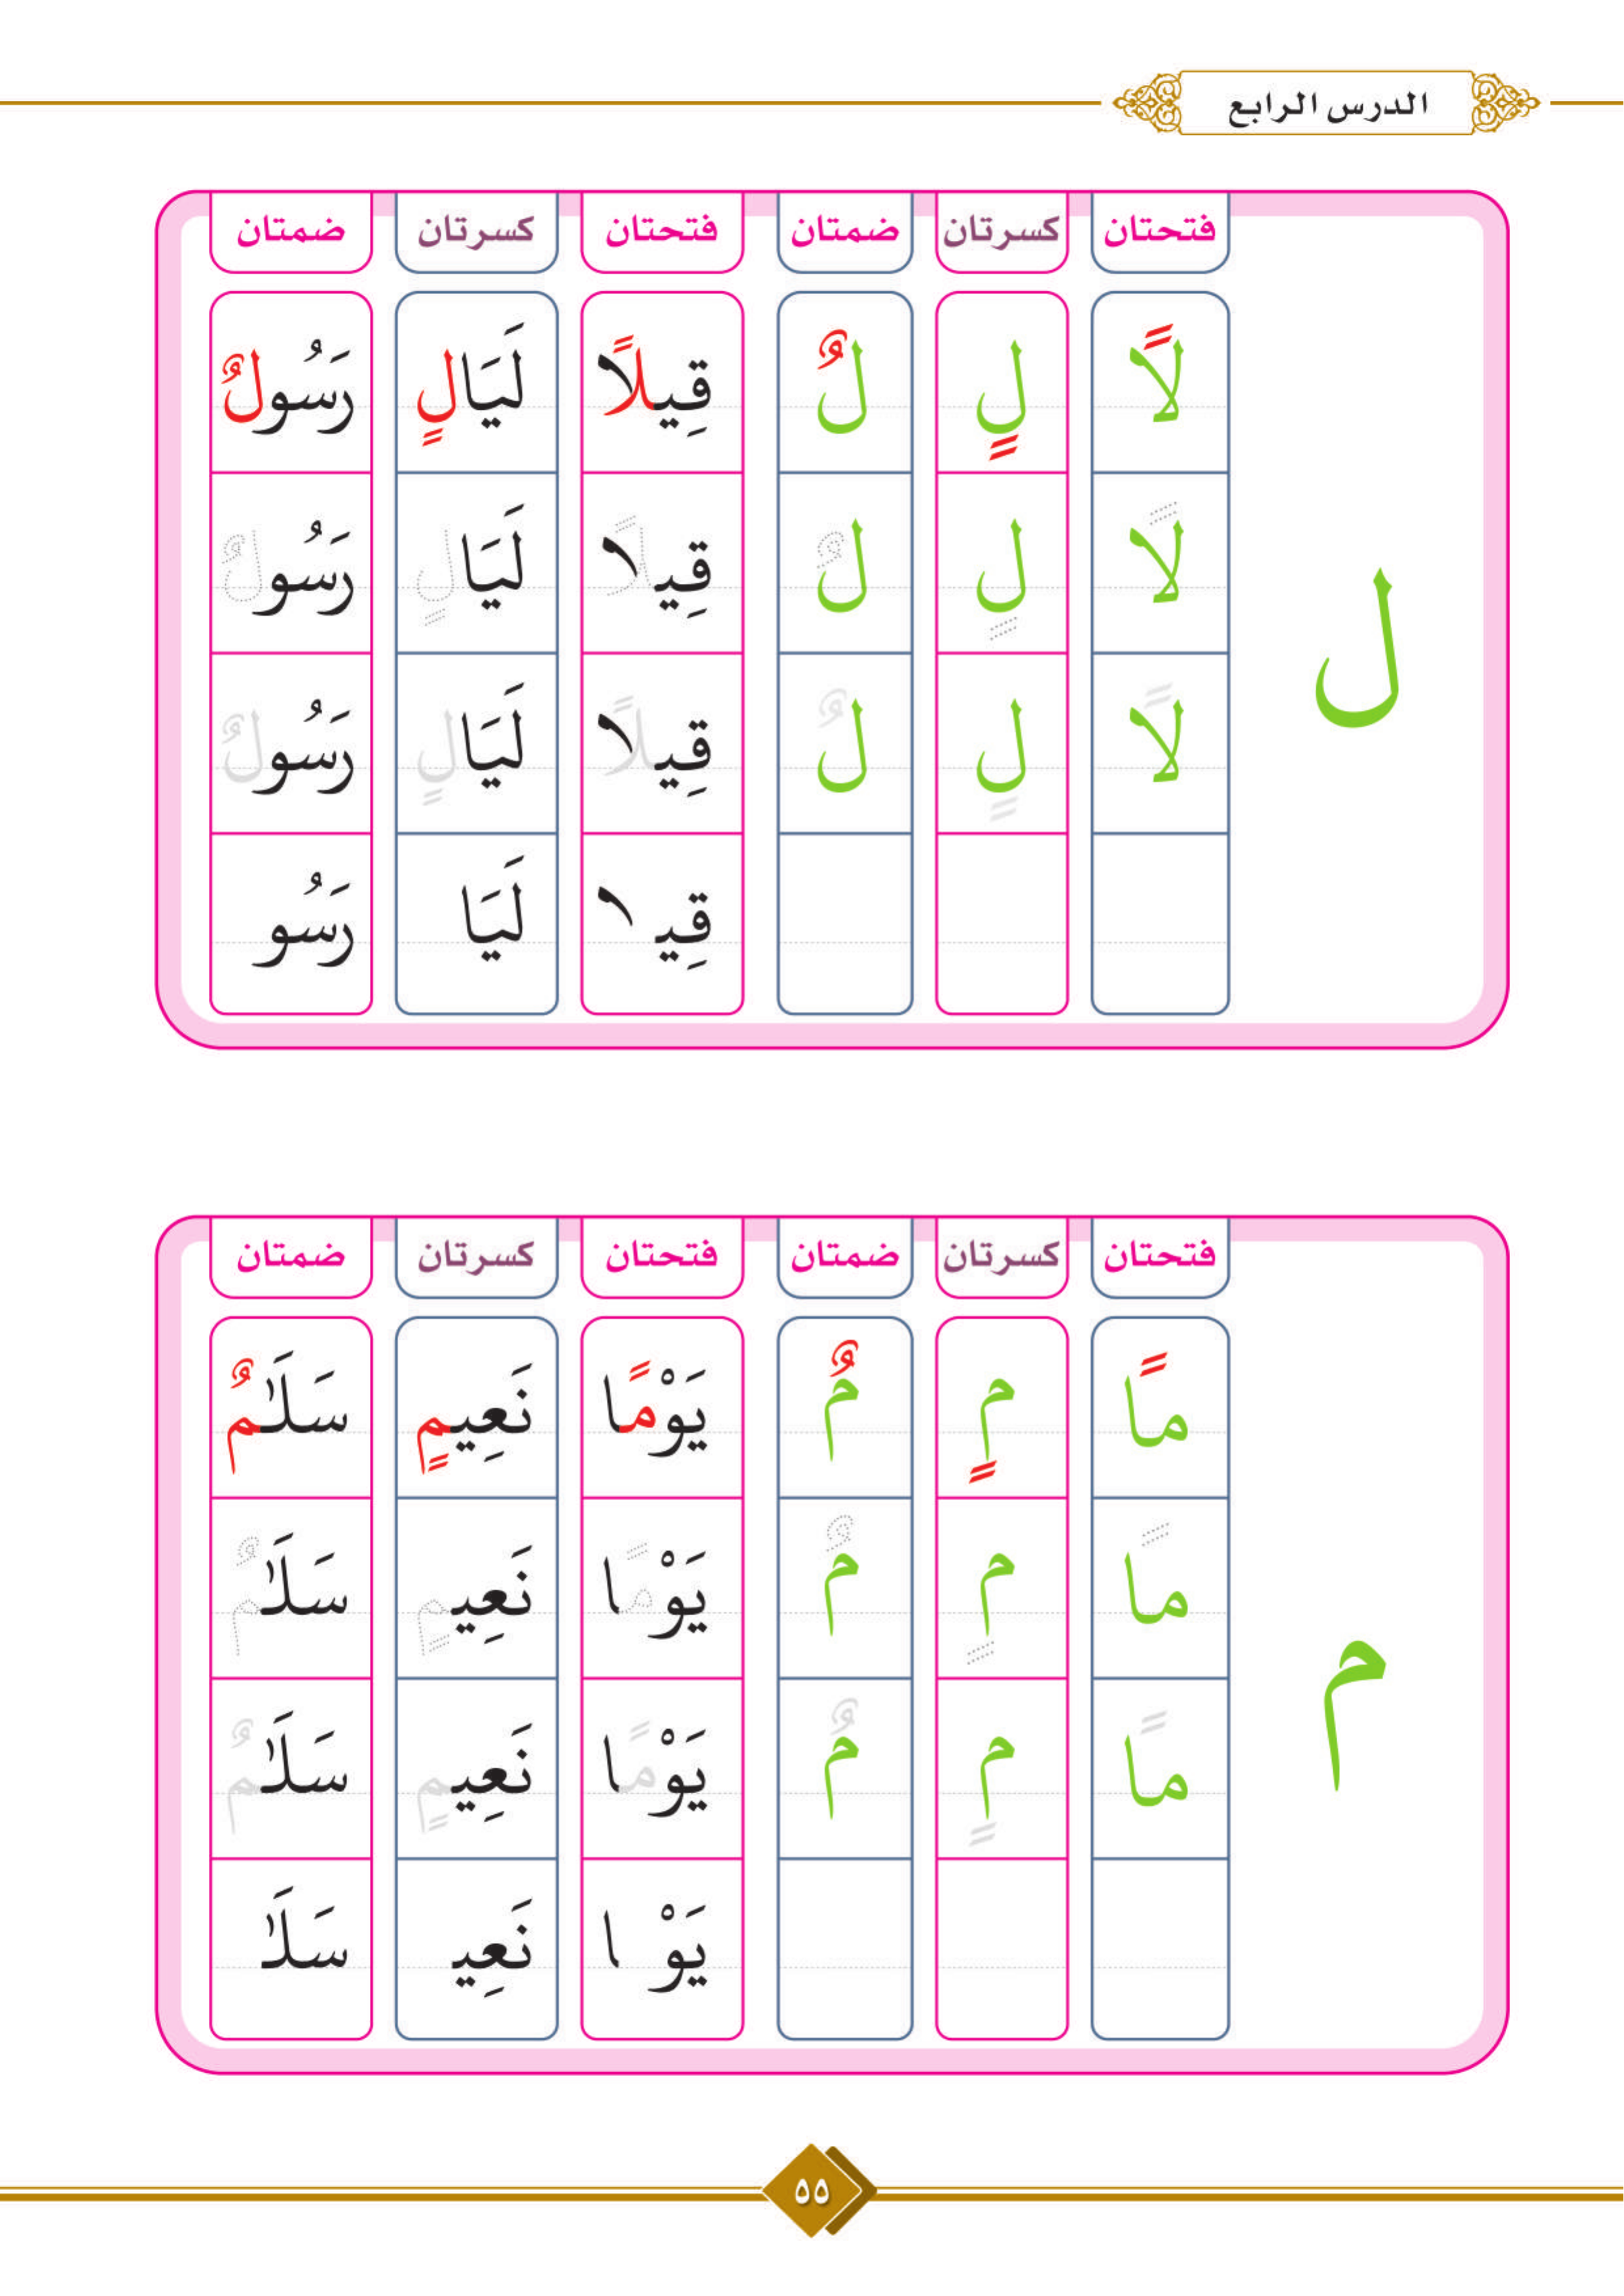 الدرس الرابع
فتحتان كسرتان ضمتان فتحتان كسرتان ضمتان
لًا لٍ لٌ قِيلًا لَيَالٍ رَسُولٌ
لًا لٍ لٌ قِيلًا لَيَالٍ رَسُولٌ
ل
لًا لٍ لٌ قِيلًا لَيَالٍ رَسُولٌ
قِيـ ا لَيَا رَسُو
فتحتان كسرتان ضمتان فتحتان كسرتان ضمتان
مًا مٍ مٌ يَوْمًا نَعِيمٍ سَلَٰمٌ
مًا مٍ مٌ يَوْمًا نَعِيمٍ سَلَٰمٌ
م
مًا مٍ مٌ يَوْمًا نَعِيمٍ سَلَٰمٌ
يَوْ ا نَعِيـ سَلَٰـ
٥٥